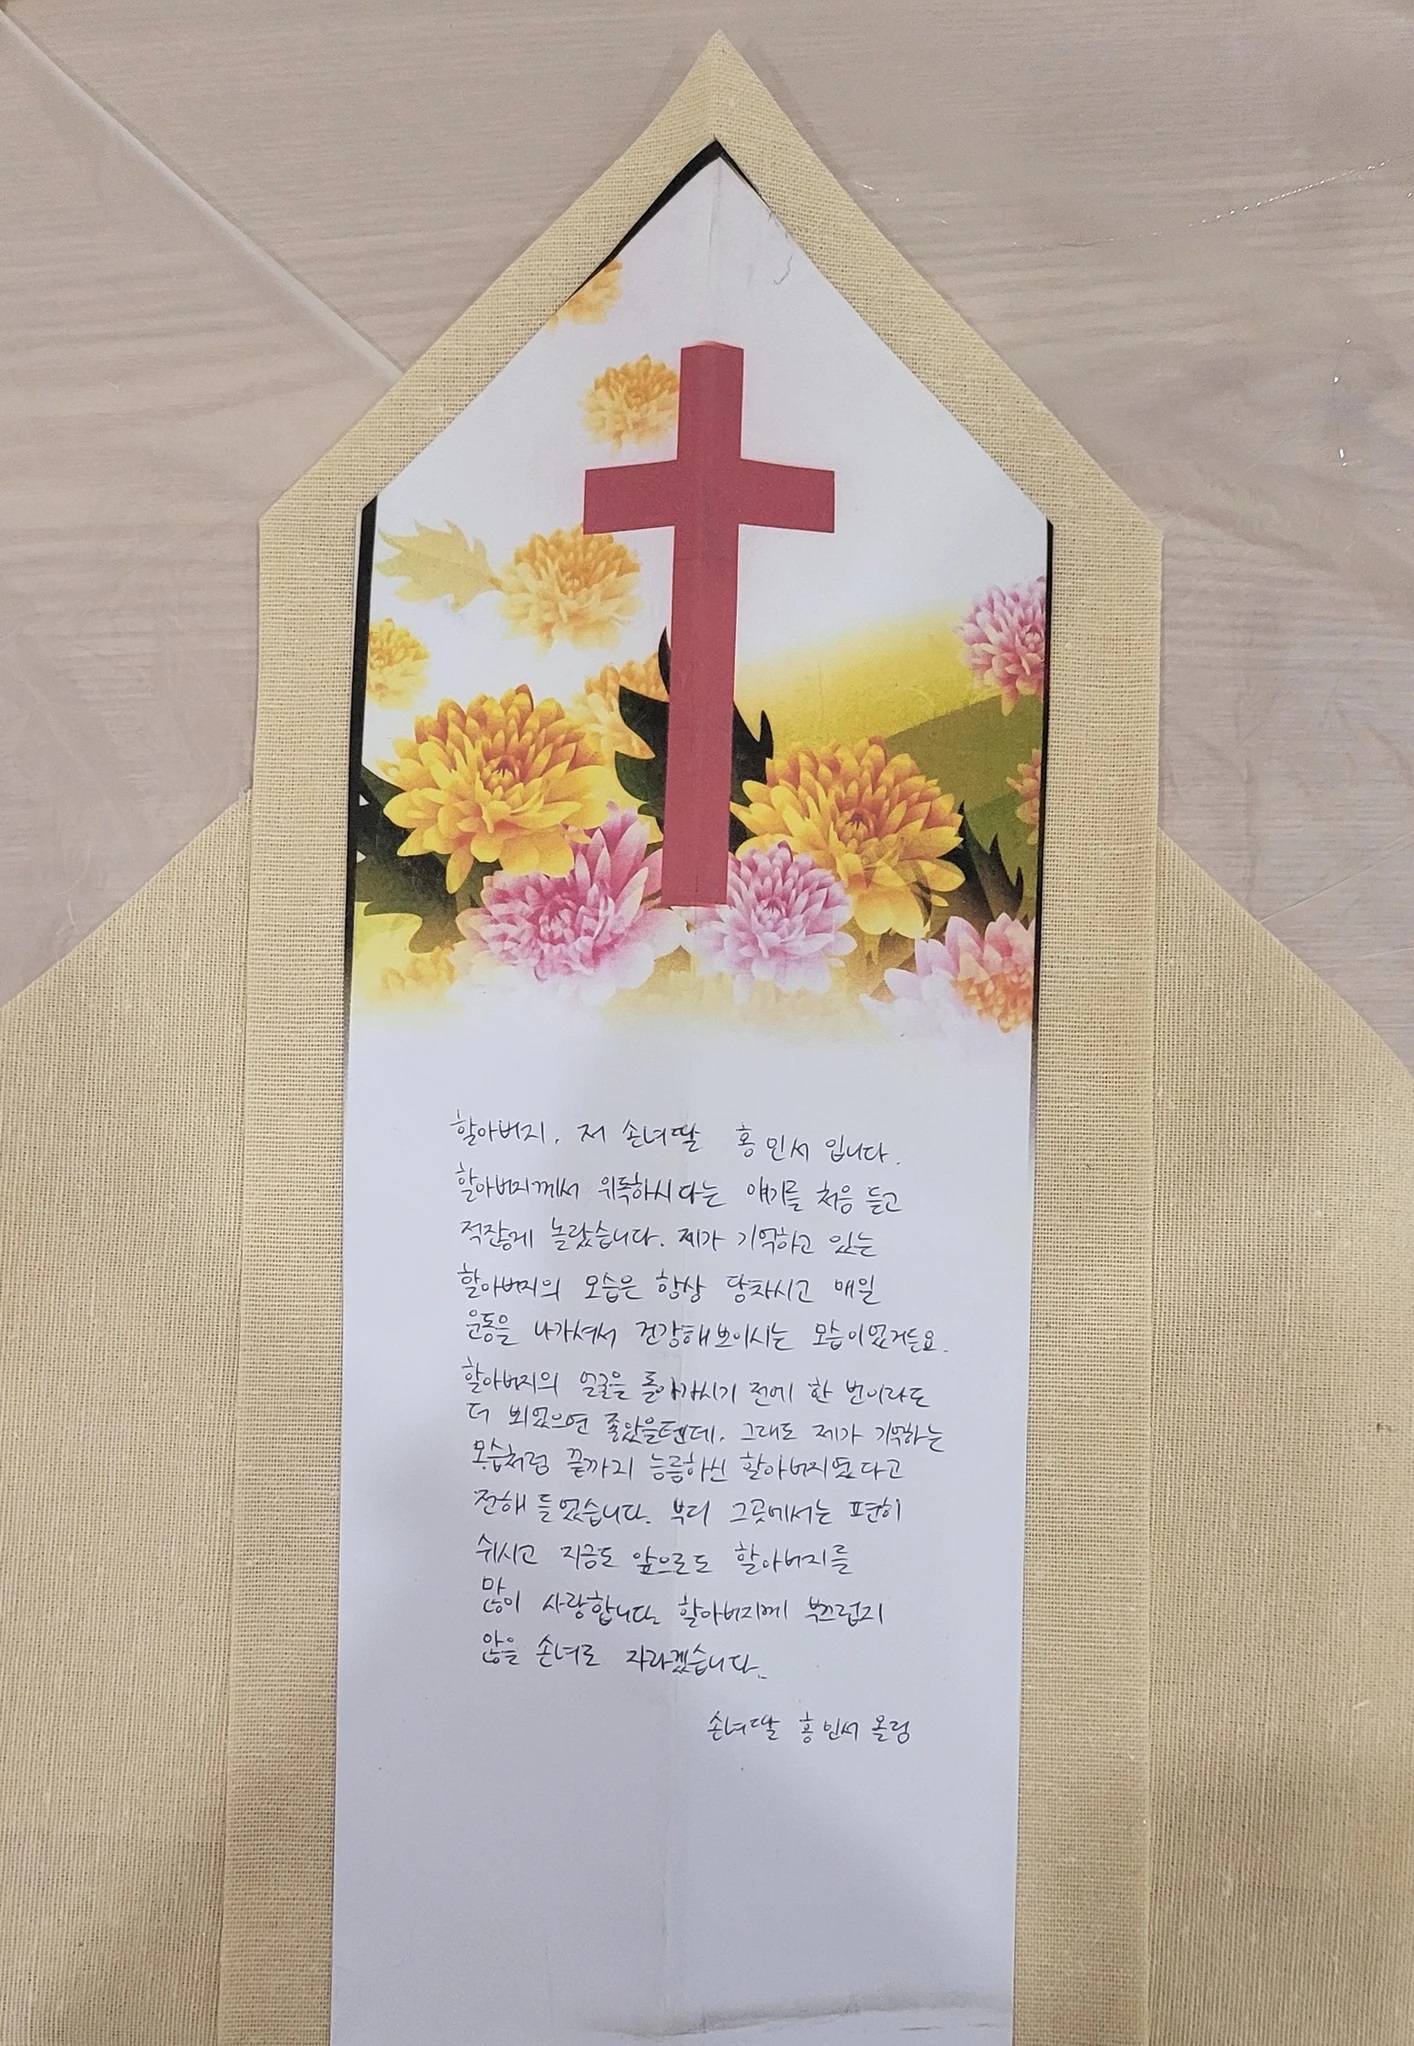 할아버지, 저 손녀딸 홍민서입니다.
할아버지께서 위독하시다는 얘기를 처음 듣고
적잖게 놀랐습니다. 제가 기억하고 있는
할아버지의 모습은 항상 당차시고 매일
운동을 나가셔서 건강해보이시는 모습이었거든요.
할아버지의 얼굴을 돌아가시기 전에 한 번이라도
더 뵈었으면 좋았을텐데, 그래도 제가 기억하는
모습처럼 끝까지 늠름하신 할아버지였다고
전해 들었습니다. 부디 그곳에서는 편히
쉬시고 지금도 앞으로도 할아버지를
많이 사랑합니다. 할아버지께 부끄럽지
않을 손녀로 자라겠습니다..
손녀딸 홍민서 올림